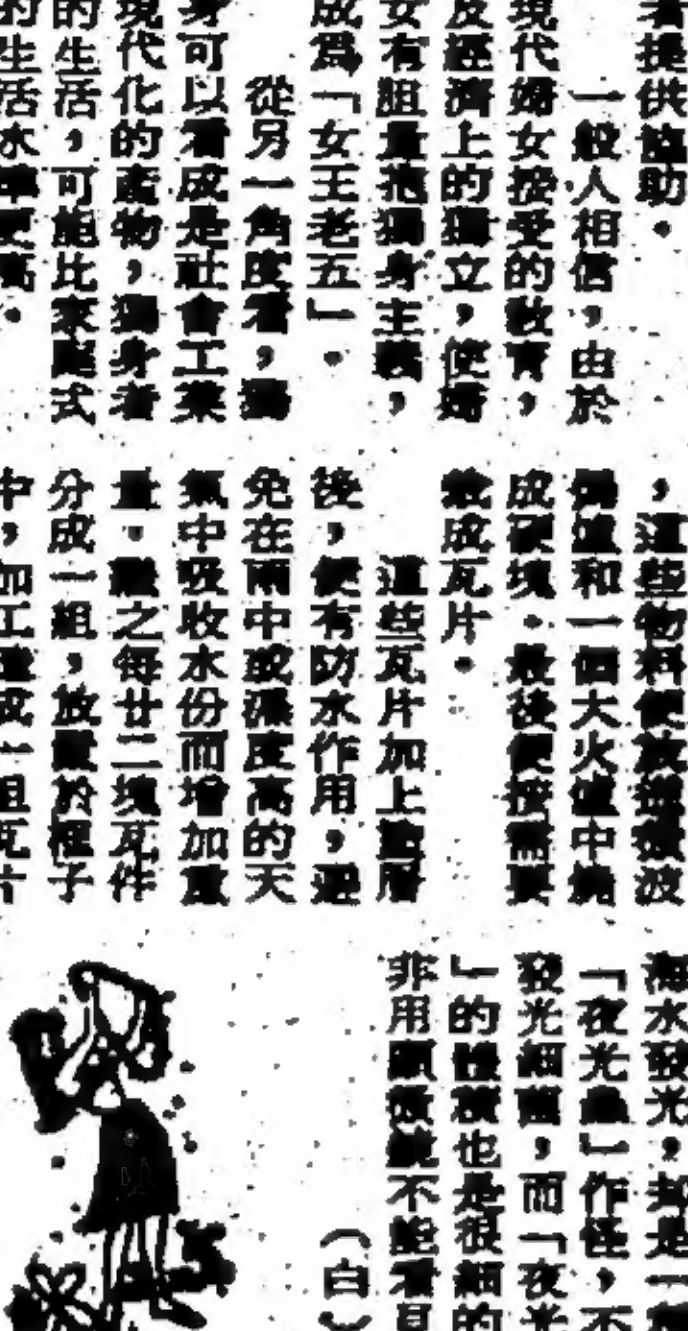 者提供協助。
一般人相信，由於
現代婦女接受的敎育，
及經濟上的獨立，使婦
女有胆量抱獨身主義，
成爲「女王老五」。
從另一角度看，獨
身可以看成是社會工業
現代化的產物，獨身者
的生活，可能比家庭式
的生活水準更高。
，這些物料便放進微波
爐和一個大火爐中燒
成硬塊。最後便按需要
成瓦片。
這些瓦片加上
後，便有防水作用，避
免在雨中或濕度高的天
氣中吸收水份而增加重
量。之每廿二塊瓦件
分成一組，放置於框子
中，加工 成一組瓦片
海水發光，却是一種
「夜光蟲」作怪，不
發光細菌，而「夜光
」的體積也是很細的
非用顯微鏡不能看見
（白）